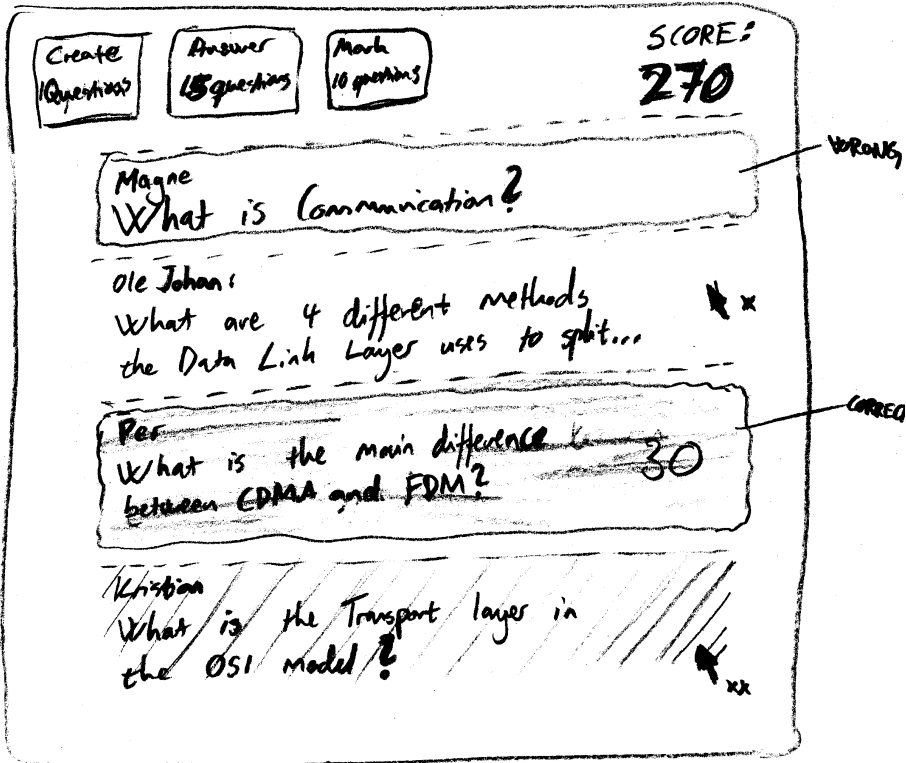 Create
10 questions
Answer
15 questions
Mark
10 questions
SCORE:
270
WRONG
Magne
What is Communication?
Ole Johan:
What are 4 different methods
the Data Link Layer uses to split...
x
CORREC
Per
What is the main difference
between CDMA and FDM?
30
Kristian
What is the Transport layer in
the OSI model?
xx